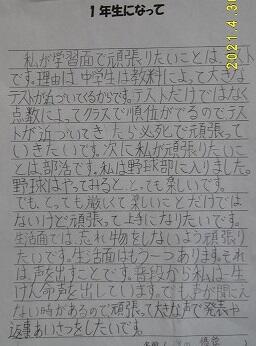 1年生になって
2021.4.30
私が学習面で頑張りたいことは、テスト
です。理由は中学生は教科によって大きな
テストが近づいてくるからです。テストだけではなく
点数によってクラスで順位がでるのでテス
トが近づいてきたら必死で頑張って
いきたいです。次に私が頑張りたいこ
とは部活です。私は野球部に入りました。
野球はやってみると、とっても楽しいです。
でも、とっても厳しくて楽しいことだけでは
ないけど頑張って上手になりたいです。
生活面では、忘れ物をしないよう頑張り
たいです。生活面はもう一つあります。それ
は声を出すことです。普段から私は一生
けん命声を出しています。でも声が聞こえ
ない時があるので頑張って大きな声で発表や
返事あいさつをしたいです。